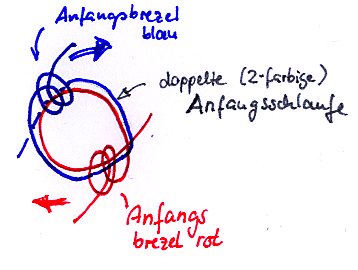 Anfangsbrezel
blau
doppelte (2-farbige)
Anfangsschlaufe
Anfangs
brezel rot